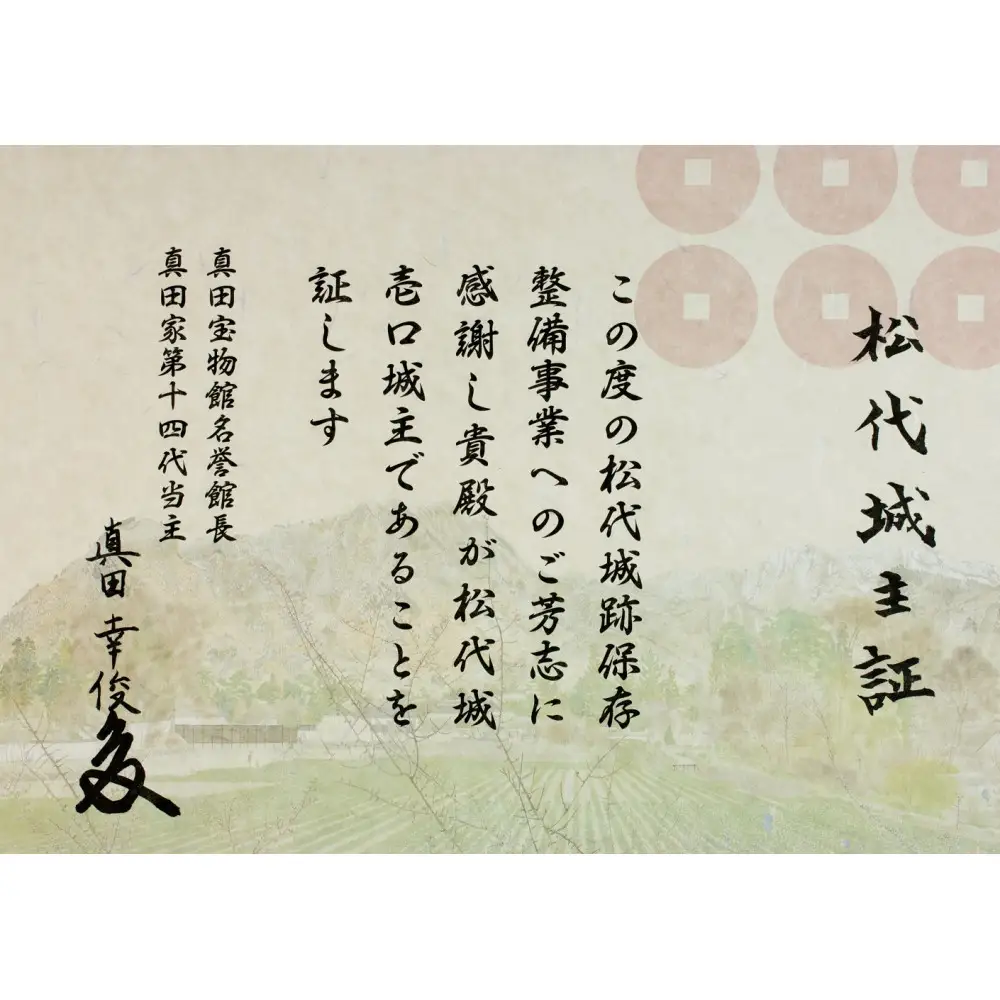 松代城主証
この度の松代城跡保存
整備事業へのご芳志に
感謝し貴殿が松代城
壱口城主であることを
証します
真田宝物館名誉館長
真田家第十四代当主
真田幸俊